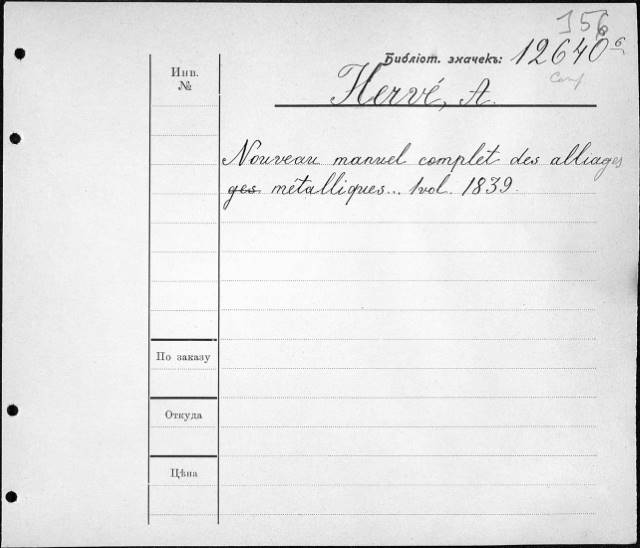 356
Библіот. значекъ: 12640 б
Инв.
№
Hervé, A.
Nouveau manuel complet des alliages
ges métalliques... 1 vol. 1839.
По заказу
Откуда
Цѣна